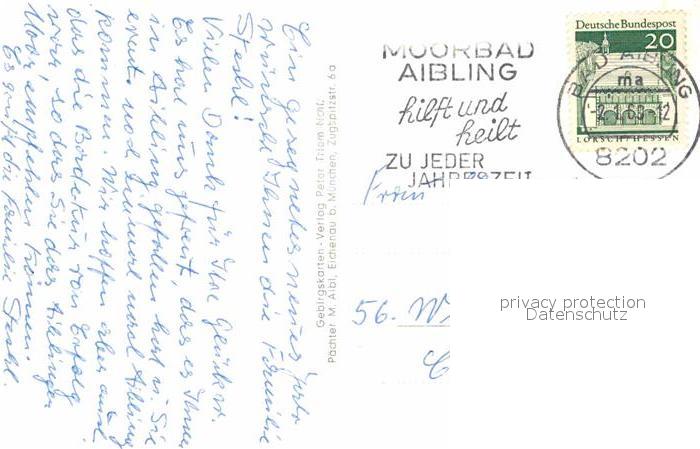 Ein gesegnetes neues Jahr
wünscht Ihnen die Familie
Stahl!
Vielen Dank für Ihre Glückw.
Es hat uns gefreut, das es Ihnen
in Aibling gefallen hat u. Sie
evtl. noch einmal nach Aibling
kommen. Wir hoffen aber auch
das die Badekur von Erfolg
war, so das Sie das Aiblinger
Moor, empfehlen können.
Es grüßt die Familie Stahl.
Gebirgskarten-Verlag Peter Thiem Nchf.
Pächter M. Aibl, Eichenau b. München, Zugspitzstr. 6a
MOORBAD
AIBLING
hilft und
heilt
ZU JEDER
JAHRESZEIT
Deutsche Bundespost
20
LORSCH/HESSEN
BAD AIBLING
ma
8202
Frau
56. W
privacy protection
Datenschutz